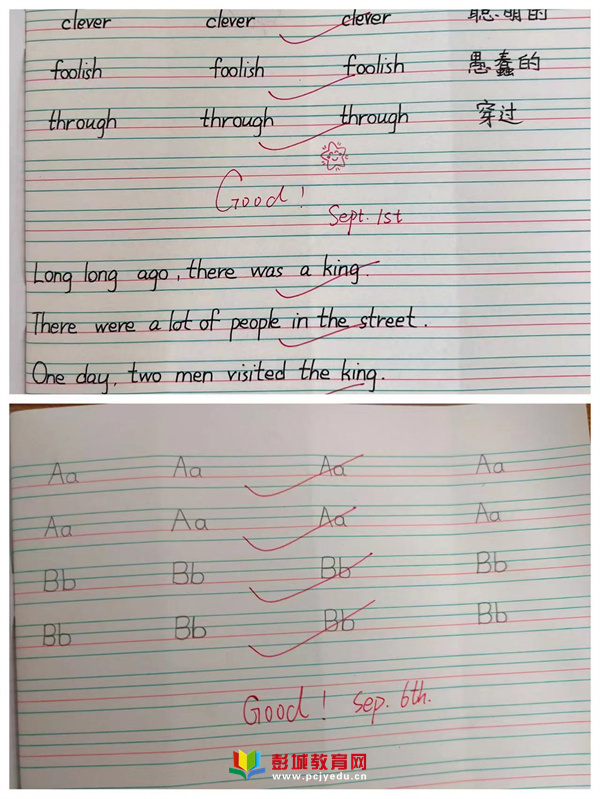 clever clever clever 聪明的
foolish foolish foolish 愚蠢的
through through through 穿过
Good!
Sept. 1st
Long long ago, there was a king.
There were a lot of people in the street.
One day, two men visited the king.
Aa Aa Aa Aa
Aa Aa Aa Aa
Bb Bb Bb Bb
Bb Bb Bb Bb
Good! Sep. 6th.
彭城教育网
www.pcjyedu.cn